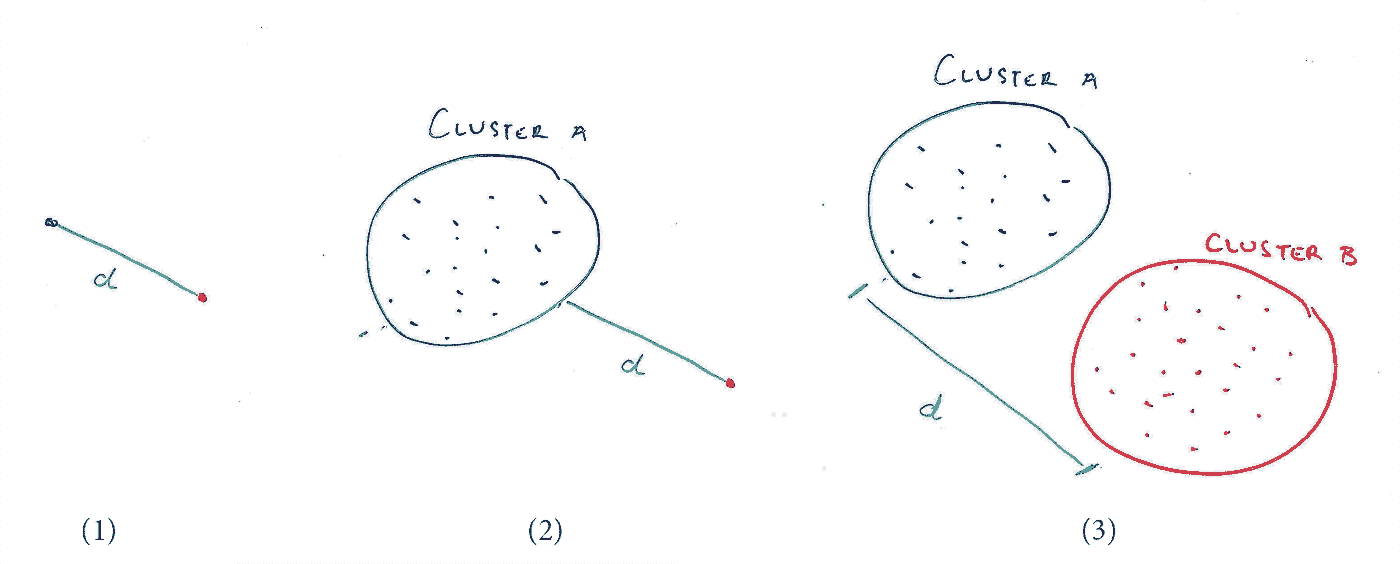 d
(1)
CLUSTER A
d
(2)
CLUSTER A
CLUSTER B
d
(3)